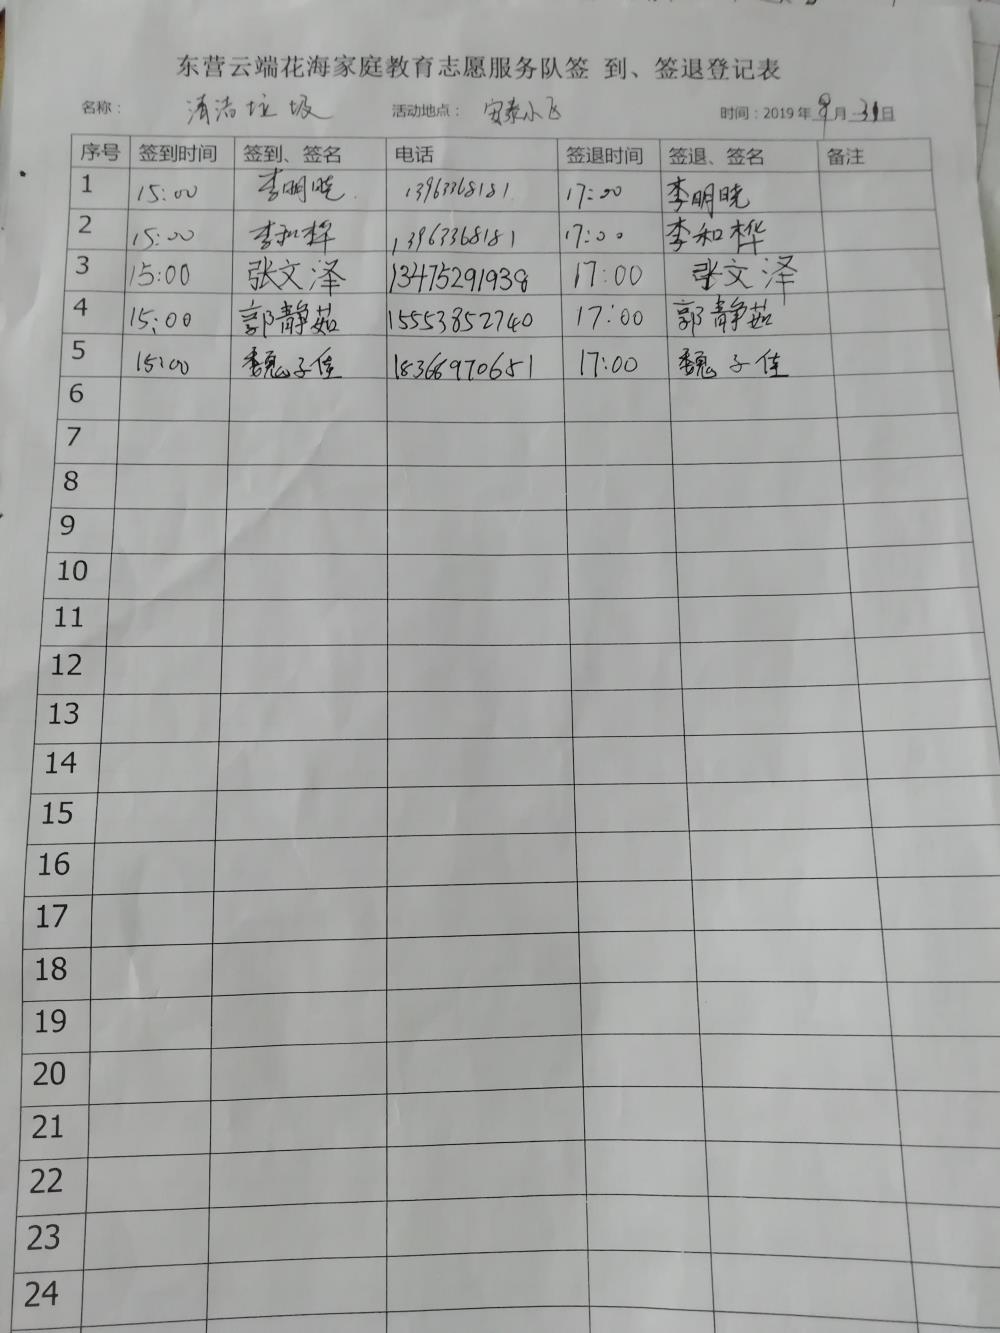 东营云端花海家庭教育志愿服务队签 到、签退登记表
名称： 清洁垃圾 活动地点： 安泰小区 时间：2019年8月31日
序号 签到时间 签到、签名 电话 签退时间 签退、签名 备注
1 15:00 李明晓 13963368181 17:00 李明晓
2 15:00 李和桦 13963368181 17:00 李和桦
3 15:00 张文泽 13475291938 17:00 张文泽
4 15:00 郭静茹 15553852740 17:00 郭静茹
5 15:00 魏子佳 18366970651 17:00 魏子佳
6
7
8
9
10
11
12
13
14
15
16
17
18
19
20
21
22
23
24